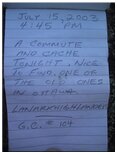 JULY 15, 2003
4:45 PM
A COMMUTE
AND CACHE
TONIGHT. NICE
TO FIND ONE OF
THE OLD ONES
IN OTTAWA
LANARKHIGHLANDER
G.C. # 104